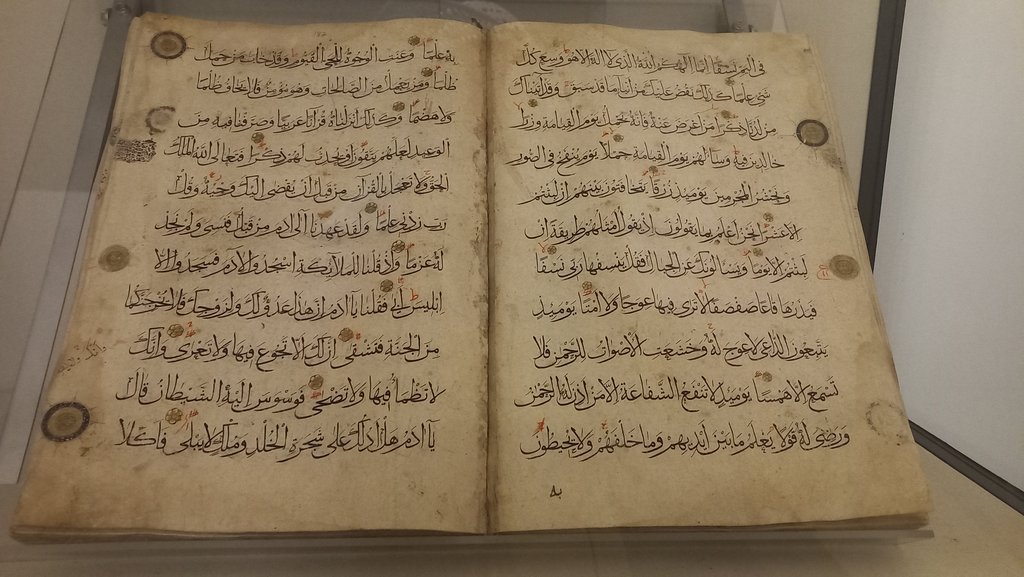 في اليم نسفا إنما إلهكم الله الذي لا إله إلا هو وسع كل
شيء علما كذلك نقص عليك من أنباء ما قد سبق وقد آتيناك
من لدنا ذكرا من أعرض عنه فإنه يحمل يوم القيامة وزرا
خالدين فيه وساء لهم يوم القيامة حملا يوم ينفخ في الصور
ونحشر المجرمين يومئذ زرقا يتخافتون بينهم إن لبثتم
إلا عشرا نحن أعلم بما يقولون إذ يقول أمثلهم طريقة إن
لبثتم إلا يوما ويسألونك عن الجبال فقل ينسفها ربي نسفا
فيذرها قاعا صفصفا لا ترى فيها عوجا ولا أمتا يومئذ
يتبعون الداعي لا عوج له وخشعت الأصوات للرحمن فلا
تسمع إلا همسا يومئذ لا تنفع الشفاعة إلا من أذن له الرحمن
ورضي له قولا يعلم ما بين أيديهم وما خلفهم ولا يحيطون
به علما وعنت الوجوه للحي القيوم وقد خاب من حمل
ظلما ومن يعمل من الصالحات وهو مؤمن فلا يخاف ظلما
ولا هضما وكذلك أنزلناه قرآنا عربيا وصرفنا فيه من
الوعيد لعلهم يتقون أو يحدث لهم ذكرا فتعالى الله الملك
الحق ولا تعجل بالقرآن من قبل أن يقضى إليك وحيه وقل
رب زدني علما ولقد عهدنا إلى آدم من قبل فنسي ولم نجد
له عزما وإذ قلنا للملائكة اسجدوا لآدم فسجدوا إلا
إبليس أبى فقلنا يا آدم إن هذا عدو لك ولزوجك فلا يخرجنكما
من الجنة فتشقى إن لك ألا تجوع فيها ولا تعرى وأنك
لا تظمأ فيها ولا تضحى فوسوس إليه الشيطان قال
يا آدم هل أدلك على شجرة الخلد وملك لا يبلى فأكلا